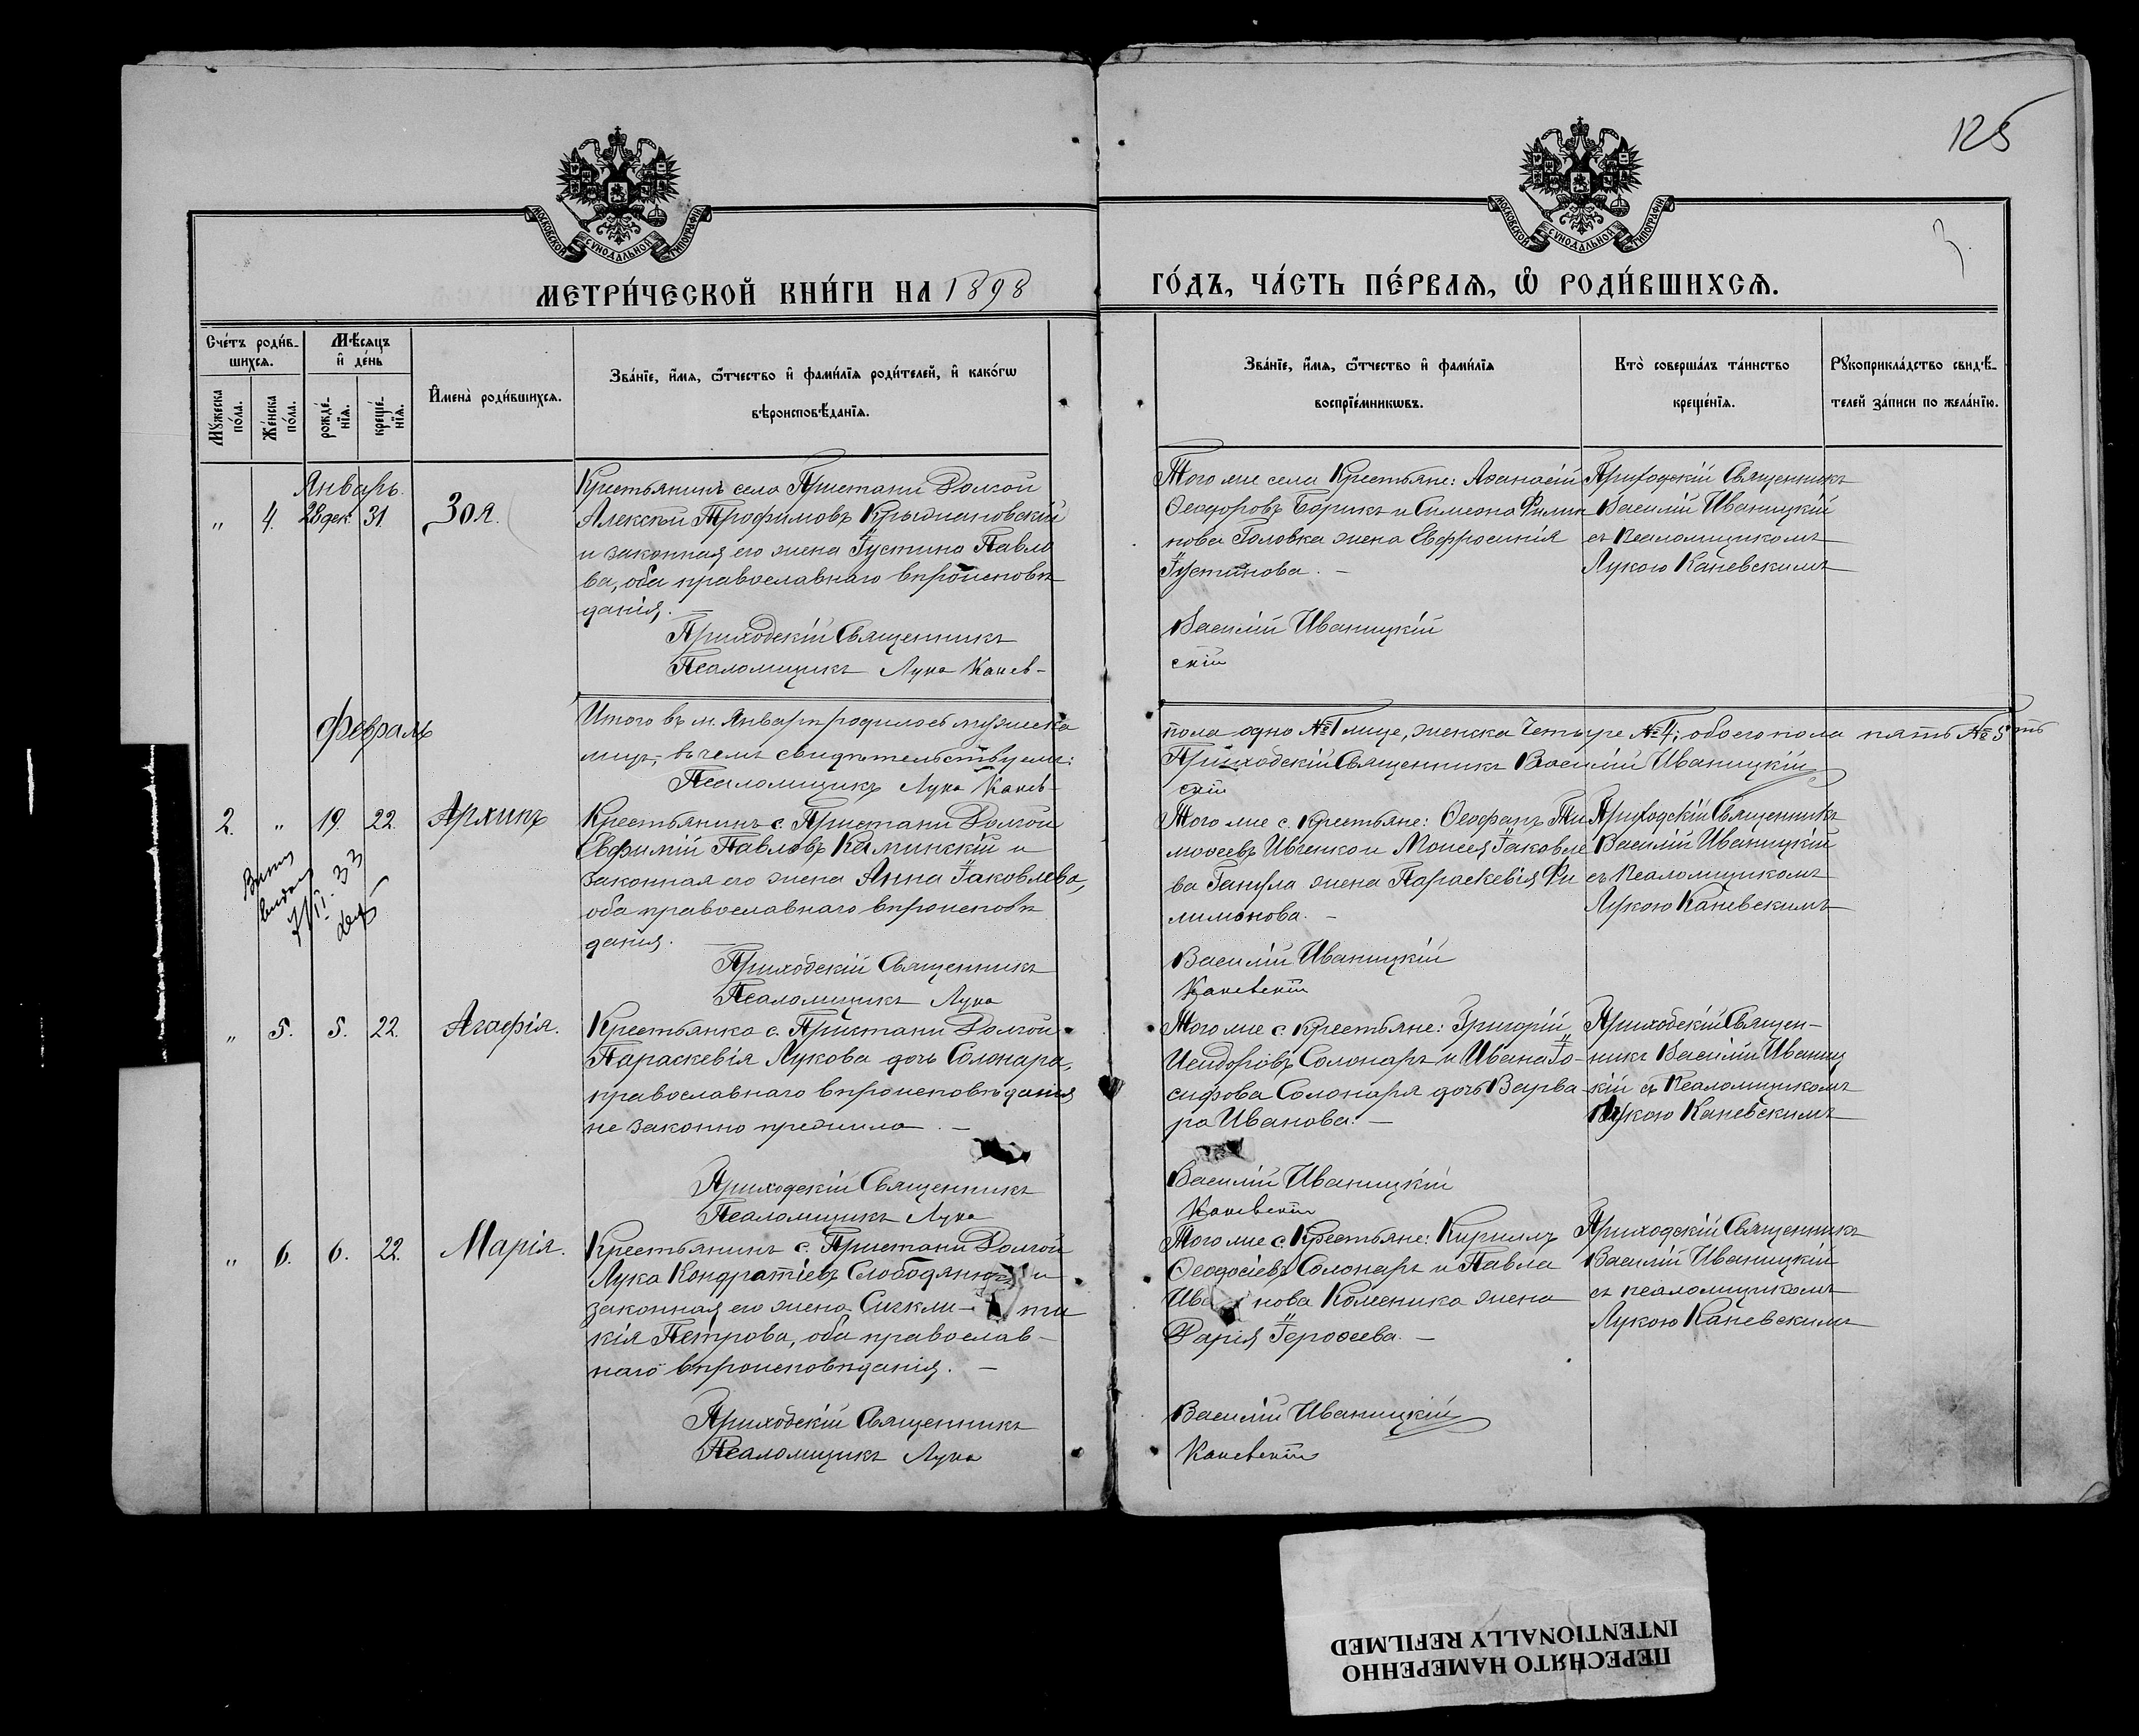 125
3.
МОСКОВСКОЙ СѴНОДАЛЬНОЙ ТИПОГРАФІИ
МОСКОВСКОЙ СѴНОДАЛЬНОЙ ТИПОГРАФІИ
МЕТРИ́ЧЕСКОЙ КНИ́ГИ НА 1898
ГО́ДЪ, ЧА́СТЬ ПЕ́РВАѦ, Ѡ҆ РОДИ́ВШИХСѦ.
Сче́тъ роди́в-
шихсѧ.
Мѣ́сѧцъ
и҆ де́нь
Мꙋ́жеска
по́ла.
Же́нска
по́ла.
рожде́-
нїѧ.
креще́-
нїѧ.
И҆мена̀ роди́вшихсѧ.
Зва́нїе, и҆́мѧ, ѻ҆́тчество и҆ фами́лїѧ роди́телей, и҆ како́гѡ
вѣроисповѣ́данїѧ.
Зва́нїе, и҆́мѧ, ѻ҆́тчество и҆ фами́лїѧ
воспрїе́мникѡвъ.
Кто̀ соверша́лъ та́инство
креще́нїѧ.
Рꙋкоприкла́дство свидѣ́-
телей за́писи по жела́нїю.
Январь.
" 4. 28 дек. 31 Зоя.
Крестьянинъ села Пристани Долгой
Алексѣй Трофимовъ Крыжановскій
и законная его жена Іустина Павло
ва, оба православнаго вѣроисповѣ
данія. —
Приходскій Священникъ
Псаломщикъ Лука Канев-
Того же села Крестьяне: Аѳанасій
Ѳеодоровъ Борикъ и Симеона Филип
пова Головка жена Евфросинія
Іустинова. —
Василій Иваницкій
скій
Приходскій Священникъ
Василій Иваницкій
съ Псаломщикомъ
Лукою Каневскимъ
Февраль
Итого въ м. Январѣ родилось мужеска
пола одно №1 лице, женска четыре №4; обоего пола пять №5ть
лицъ, въ чемъ свидѣтельствуемъ:
Приходскій Священникъ Василій Иваницкій
Псаломщикъ Лука Канев-
скій
2. " 19. 22. Архипъ
33
Крестьянинъ с. Пристани Долгой
Евфимій Павловъ Каминскій и
законная его жена Анна Іаковлева,
оба православнаго вѣроисповѣ
данія. —
Приходскій Священникъ
Псаломщикъ Лука
Того же с. Крестьяне: Ѳеофанъ Ти
моѳеевъ Ивченко и Моисея Іаковле
ва жена Параскевія Фи
лимонова. —
Василій Иваницкій
Каневскій
Приходскій Священникъ
Василій Иваницкій
съ Псаломщикомъ
Лукою Каневскимъ
" 5. 5. 22. Агафія.
Крестьянка с. Пристани Долгой
Параскевія Лукова дочь Солонаря,
православнаго вѣроисповѣданія
не законно прежила. —
Приходскій Священникъ
Псаломщикъ Лука
Того же с. Крестьяне: Григорій
Исидоровъ Солонарь и Ивана Іо-
сифова Солонаря дочь Варва
ра Иванова. —
Василій Иваницкій
Каневскій
Приходскій Священ-
никъ Василій Иваниц
кій съ Псаломщикомъ
Лукою Каневскимъ
" 6. 6. 22. Марія.
Крестьянинъ с. Пристани Долгой
Лука Кондратіевъ Слободянюкъ и
законная его жена Сигкли- ти
кія Петрова, оба православ-
наго вѣроисповѣданія. —
Приходскій Священникъ
Псаломщикъ Лука
Того же с. Крестьяне: Кириллъ
Ѳеодосіевъ Солонарь и Павла
Ива нова Коменика жена
Дарія Іероѳеева. —
Василій Иваницкій
Каневскій
Приходскій Священникъ
Василій Иваницкій
съ псаломщикомъ
Лукою Каневскимъ
ПЕРЕСНЯТО НАМЕРЕННО
INTENTIONALLY REFILMED